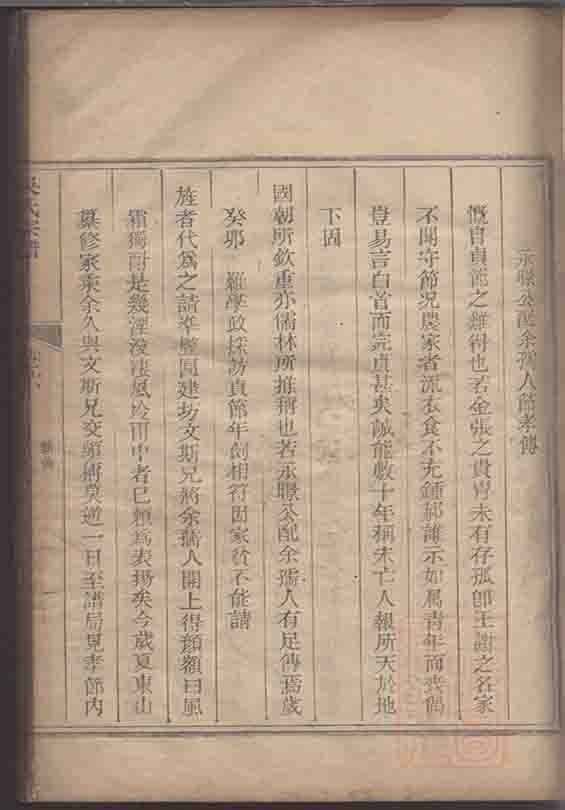 承聯公配余孺人節孝傳
慨自貞節之難得也若金張之貴胄未有存孤卽王謝之名家
不聞守節況農家者流衣食不充鍾郝誰示如属青年而喪偶
豈易言白首而完貞甚矣誠能數十年稱未亡人報所天於地
下固
國朝所欽重亦儒林所推稱也若承聯公配余孺人有足傳焉歲
癸卯 羅學政採訪貞節年例相符因家貧不能請
旌者代為之請準懸匾建坊文斯兄將余孺人開上得頒額曰風
霜獨耐是幾湮沒凄風冷雨中者已賴為表揚矣今歲夏東山
纂修家乘余久與文斯兄交頗稱莫逆一日至譜局見孝節内
吳氏宗譜